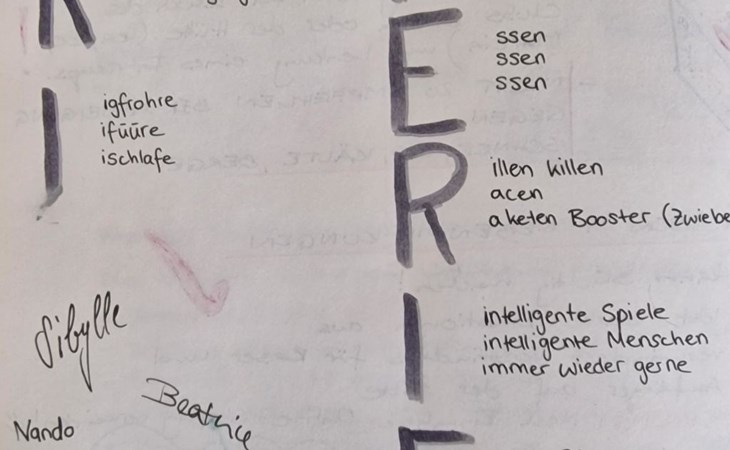 K
I
igfrohre
ifüüre
ischlafe
Sibylle
Beatrice
Nando
E
ssen
ssen
ssen
R
illen killen
acen
aketen Booster (Zwiebe
I
intelligente Spiele
intelligente Menschen
immer wieder gerne